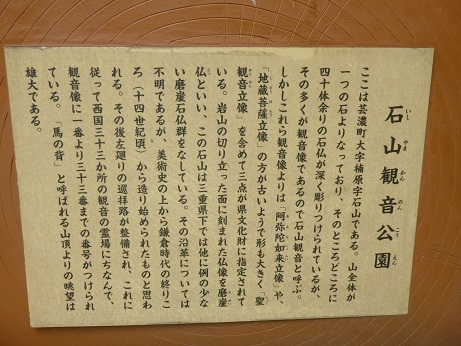 石山観音公園
いし やま かん のん こう えん
ここは芸濃町大字楠原字石山である。山全体が
一つの石よりなっており、そのところどころに
四十体余りの石仏が深く彫りつけられているが、
その多くが観音像であるので石山観音と呼ぶ。
しかしこれら観音像よりは「阿弥陀如来立像」や、
「地蔵菩薩立像」の方が古いようで形も大きく「聖
観音立像」を含めて三点が県文化財に指定されて
いる。岩山の切り立った面に刻まれた仏像を磨崖
仏といい、この石山は三重県下では他に例の少な
い磨崖石仏群をなしている。その沿革については
不明であるが、美術史の上から鎌倉時代の終りこ
ろ（十四世紀頃）から造り始められたものと思わ
れる。その後左廻りの巡拝路が整備され、これに
従って西国三十三か所の観音の霊場にちなんで、
観音像に一番より三十三番までの番号がつけられ
ている。「馬の背」と呼ばれる山頂よりの眺望は
雄大である。